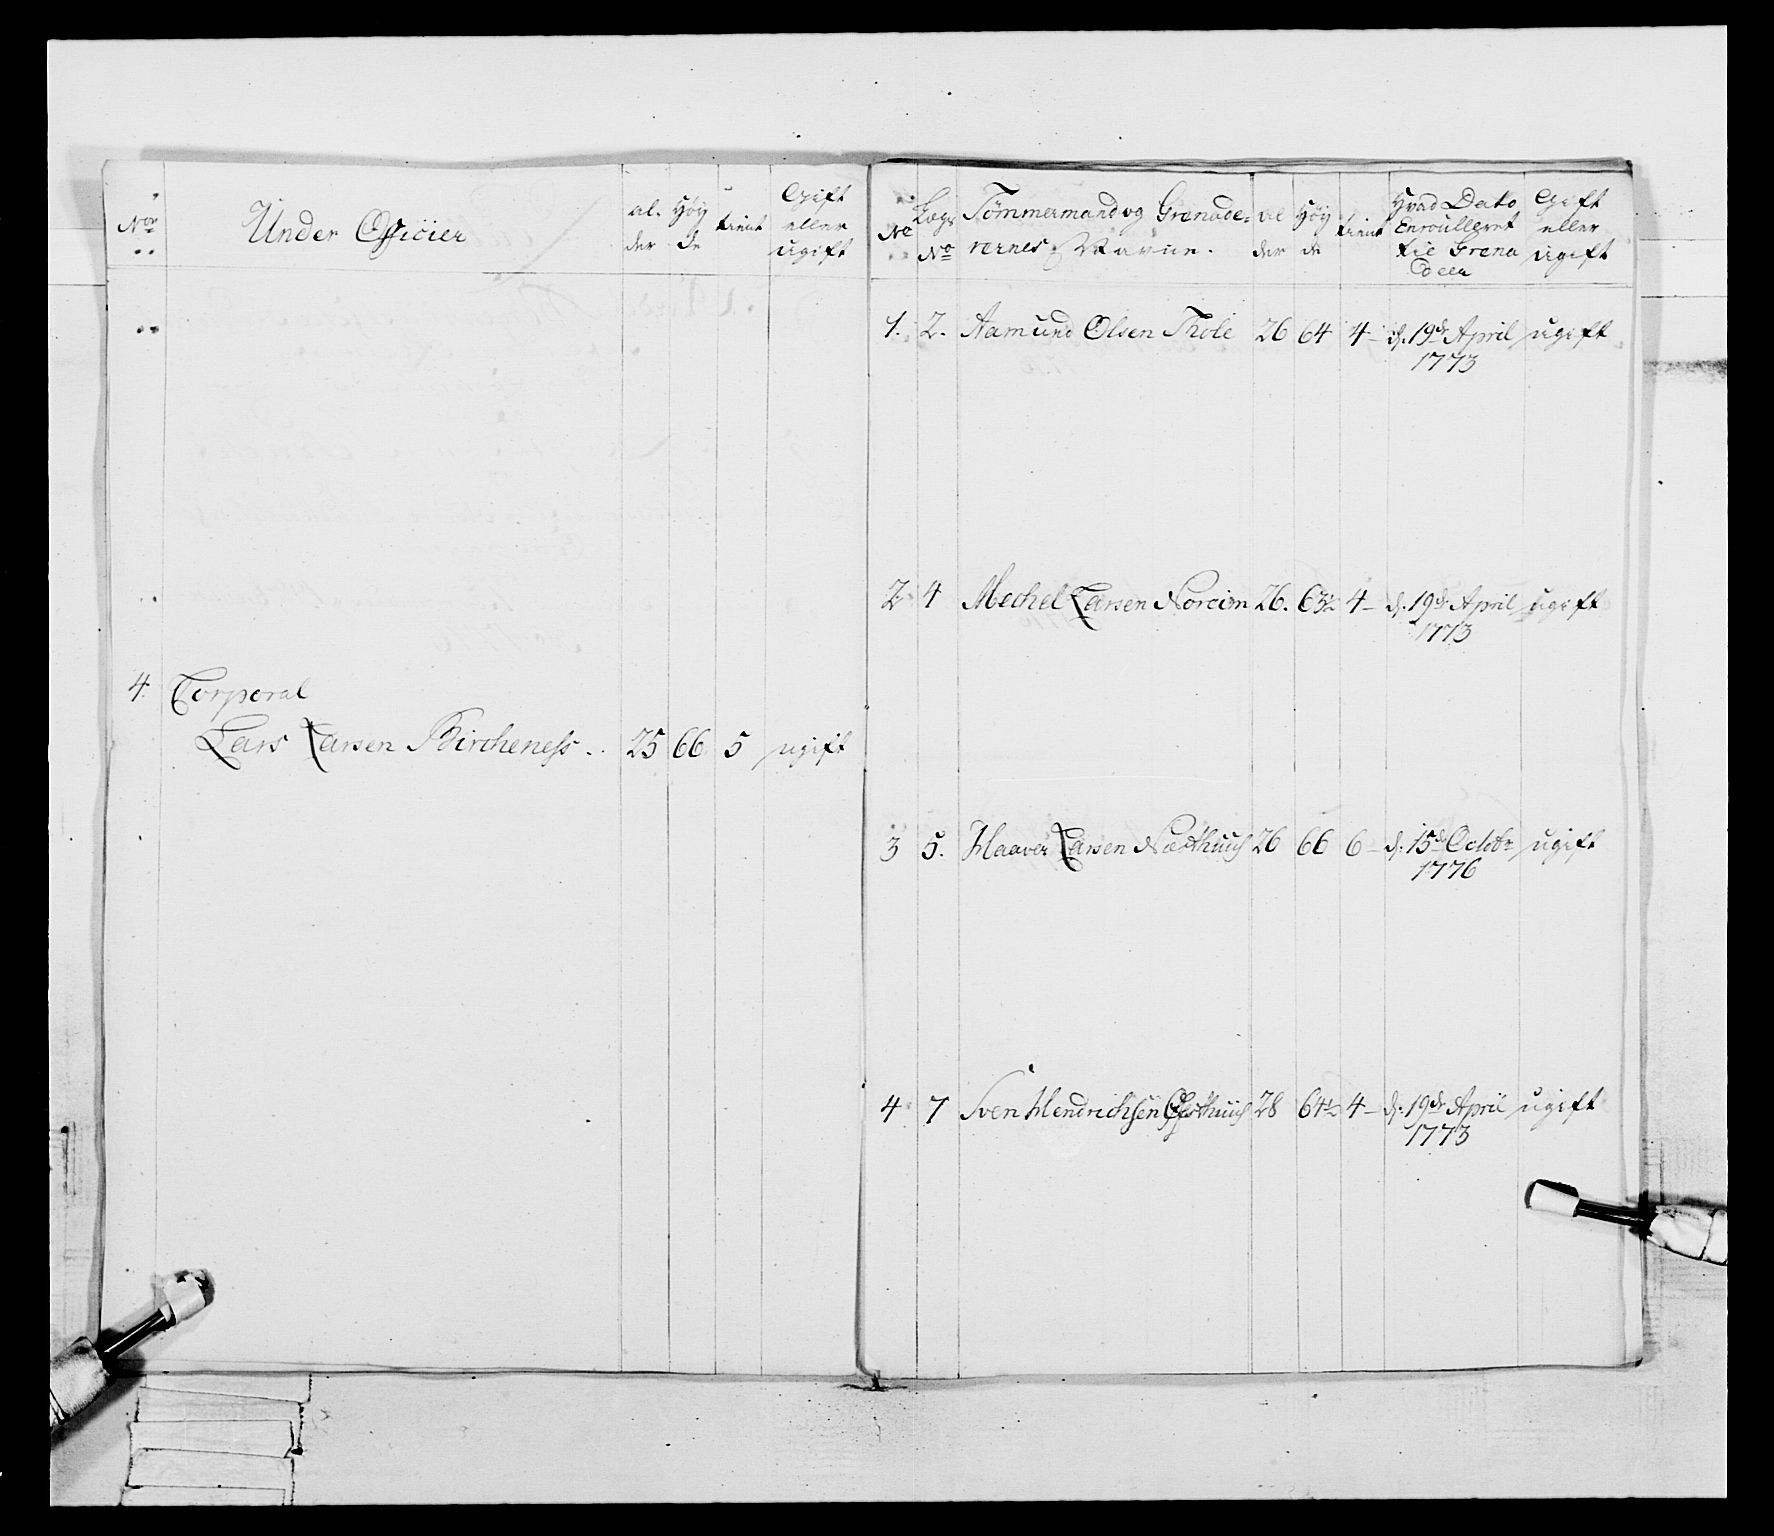 No
Under Officier
al-
der
Høy
de
tient
Gift
eller
ugift
4. Corporal
Lars Larsen Bircheness .. 25 66 5 ugift
No
Lægs
No
Tømmermand og Grenade-
rernes Navne.
al
der
Høy
de
tient
Hvad Dato
Enroulleret
til Grena
deer
Gift
eller
ugift
1. 2. Aamund Olsen Thole 26 64 4 – d. 19de April ugift
1773
2. 4 Mechel Larsen Noreim 26. 63½ 4 – d. 19de April ugift
1773
3 5. Haaver Larsen 26 66 6 – d. 15de Octobr ugift
1776
4 7 Sven Hendrichsen 28 64½ 4 – d. 19de April ugift
1773